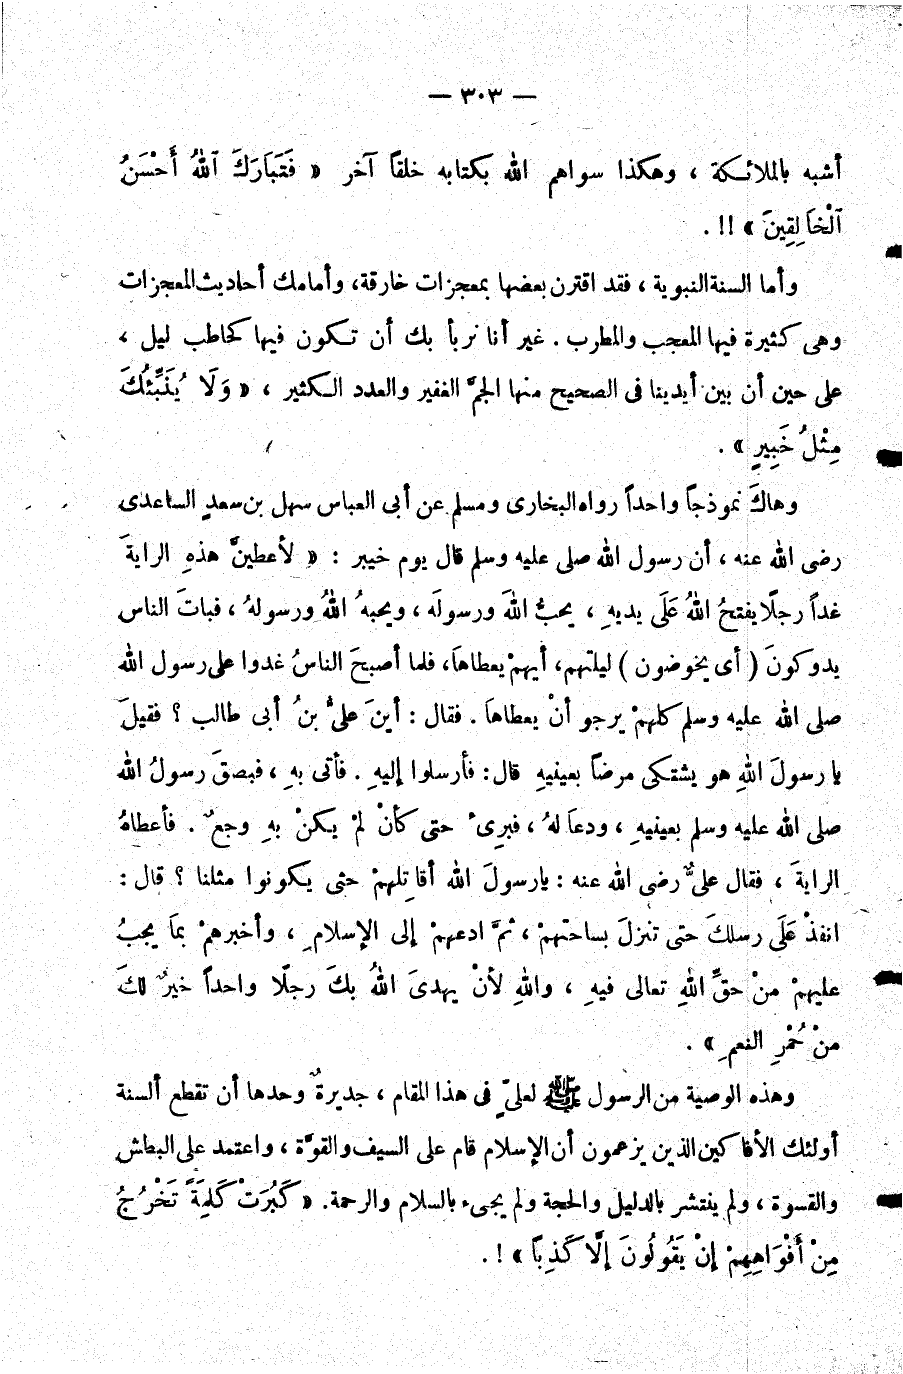 — ٣٠٣ —
أشبه بالملائكة ، وهكذا سواهم الله بكتابه خلقاً آخر « فَتَبَارَكَ ٱللهُ أَحْسَنُ
ٱلْخَالِقِينَ » !! .
وأما السنة النبوية ، فقد اقترن بعضها بمعجزات خارقة، وأمامك أحاديث المعجزات
وهى كثيرة فيها المعجب والمطرب . غير أنا نربأ بك أن تكون فيها كحاطب ليل ،
على حين أن بين أيدينا فى الصحيح منها الجمَّ الغفير والعدد الكثير ، « وَلَا يُنَبِّئُكَ
مِثْلُ خَبِيرٍ » .
وهاكَ نموذجاً واحداً رواه البخارى ومسلم عن أبى العباس سهل بن سعدٍ الساعدى
رضى الله عنه ، أن رسول الله صلى عليه وسلم قال يوم خيبر : « لأعطينَّ هذهِ الرايةَ
غداً رجلًا يفتحُ اللهُ عَلَى يديهِ ، يحبُّ اللهَ ورسولَه ، ويحبهُ اللهُ ورسولهُ ، فباتَ الناس
يدوكونَ ( أى يخوضون ) ليلتهم، أيهمْ يعطاهاَ، فلما أصبحَ الناسُ غدوا على رسول الله
صلى الله عليه وسلم كلهمْ يرجو أنْ يعطاهاَ . فقال : أينَ علىُّ بنُ أبى طالب ؟ فقيلَ
يا رسولَ اللهِ هو يشتكى مرضاً بعينيهِ قال: فأرسلوا إليهِ . فأتى بهِ ، فبصقَ رسولُ الله
صلى الله عليه وسلم بعينيهِ ، ودعاَ لهُ ، فبرِئ حتى كأنْ لمْ يكنْ بهِ وجعٌ . فأعطاهُ
الرايةَ ، فقال علىٌّ رضى الله عنه : يارسولَ الله أقاتِلهمْ حتى يكونوا مثلنا ؟ قال :
انفذْ عَلَى رسلكَ حتى تنزلَ بساحتهمْ ، ثمَّ ادعهمْ إلى الإسلامِ ، وأخبرهمْ بماَ يجبُ
عليهمْ منْ حقِّ اللهِ تعالى فيهِ ، واللهِ لأنْ يهدىَ اللهُ بكَ رجلًا واحداً خيرٌ لكَ
منْ حُمْرِ النعمِ » .
وهذه الوصية من الرسول ﷺ لعلىٍّ فى هذا المقام ، جديرةٌ وحدها أن تقطع ألسنة
أولئك الأفاكين الذين يزعمون أن الإسلام قام على السيف والقوَّة ، واعتمد على البطش
والقسوة ، ولم ينتشر بالدليل والحجة ولم يجىء بالسلام والرحمة. « كَبُرَتْ كَلِمَةً تَخْرُجُ
مِنْ أَفْوَاهِهِمْ إِنْ يَقُولُونَ إِلَّا كَذِباً » ! .